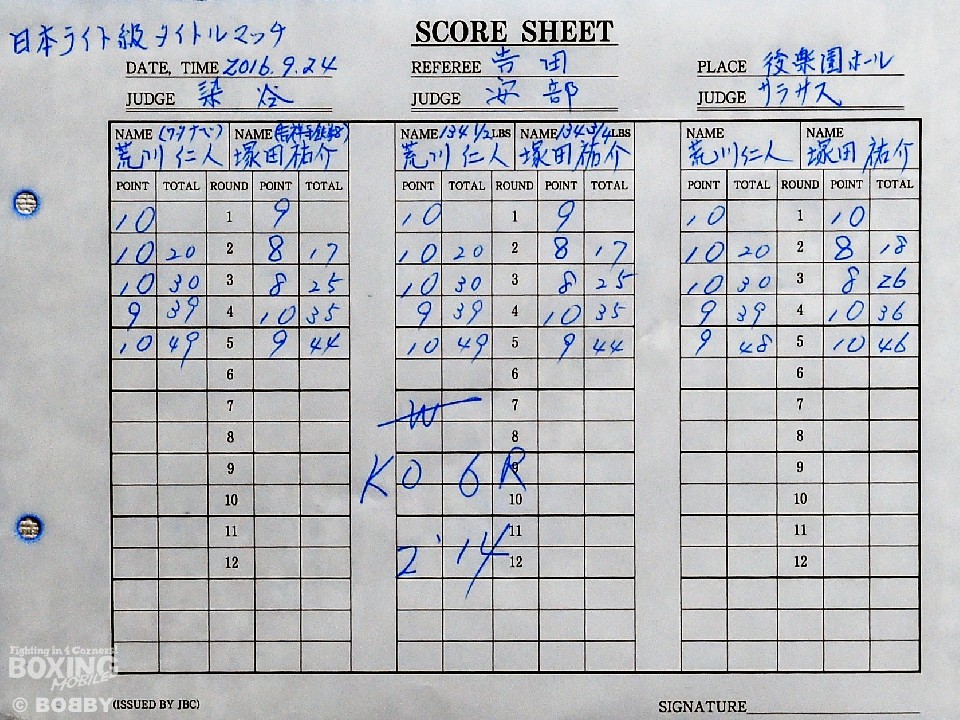 日本ライト級タイトルマッチ
SCORE SHEET
DATE, TIME 2016.9.24 REFEREE 吉田 PLACE 後楽園ホール
JUDGE 染谷 JUDGE 安部 JUDGE サラサス
NAME (ワタナベ) NAME NAME 134 1/2 LBS NAME 134 3/4 LBS NAME NAME
荒川仁人 塚田祐介 荒川仁人 塚田祐介 荒川仁人 塚田祐介
POINT TOTAL ROUND POINT TOTAL POINT TOTAL ROUND POINT TOTAL POINT TOTAL ROUND POINT TOTAL
10 1 9 10 1 9 10 1 10
10 20 2 8 17 10 20 2 8 17 10 20 2 8 18
10 30 3 8 25 10 30 3 8 25 10 30 3 8 26
9 39 4 10 35 9 39 4 10 35 9 39 4 10 36
10 49 5 9 44 10 49 5 9 44 9 48 5 10 46
6 6 6
7 W 7 7
8 8 8
9 KO 6R 9 9
10 10 10
11 11 11
12 2'14 12 12
Fighting in 4 Corners!
BOXING
MOBILE
© BOBBY
(ISSUED BY JBC) SIGNATURE